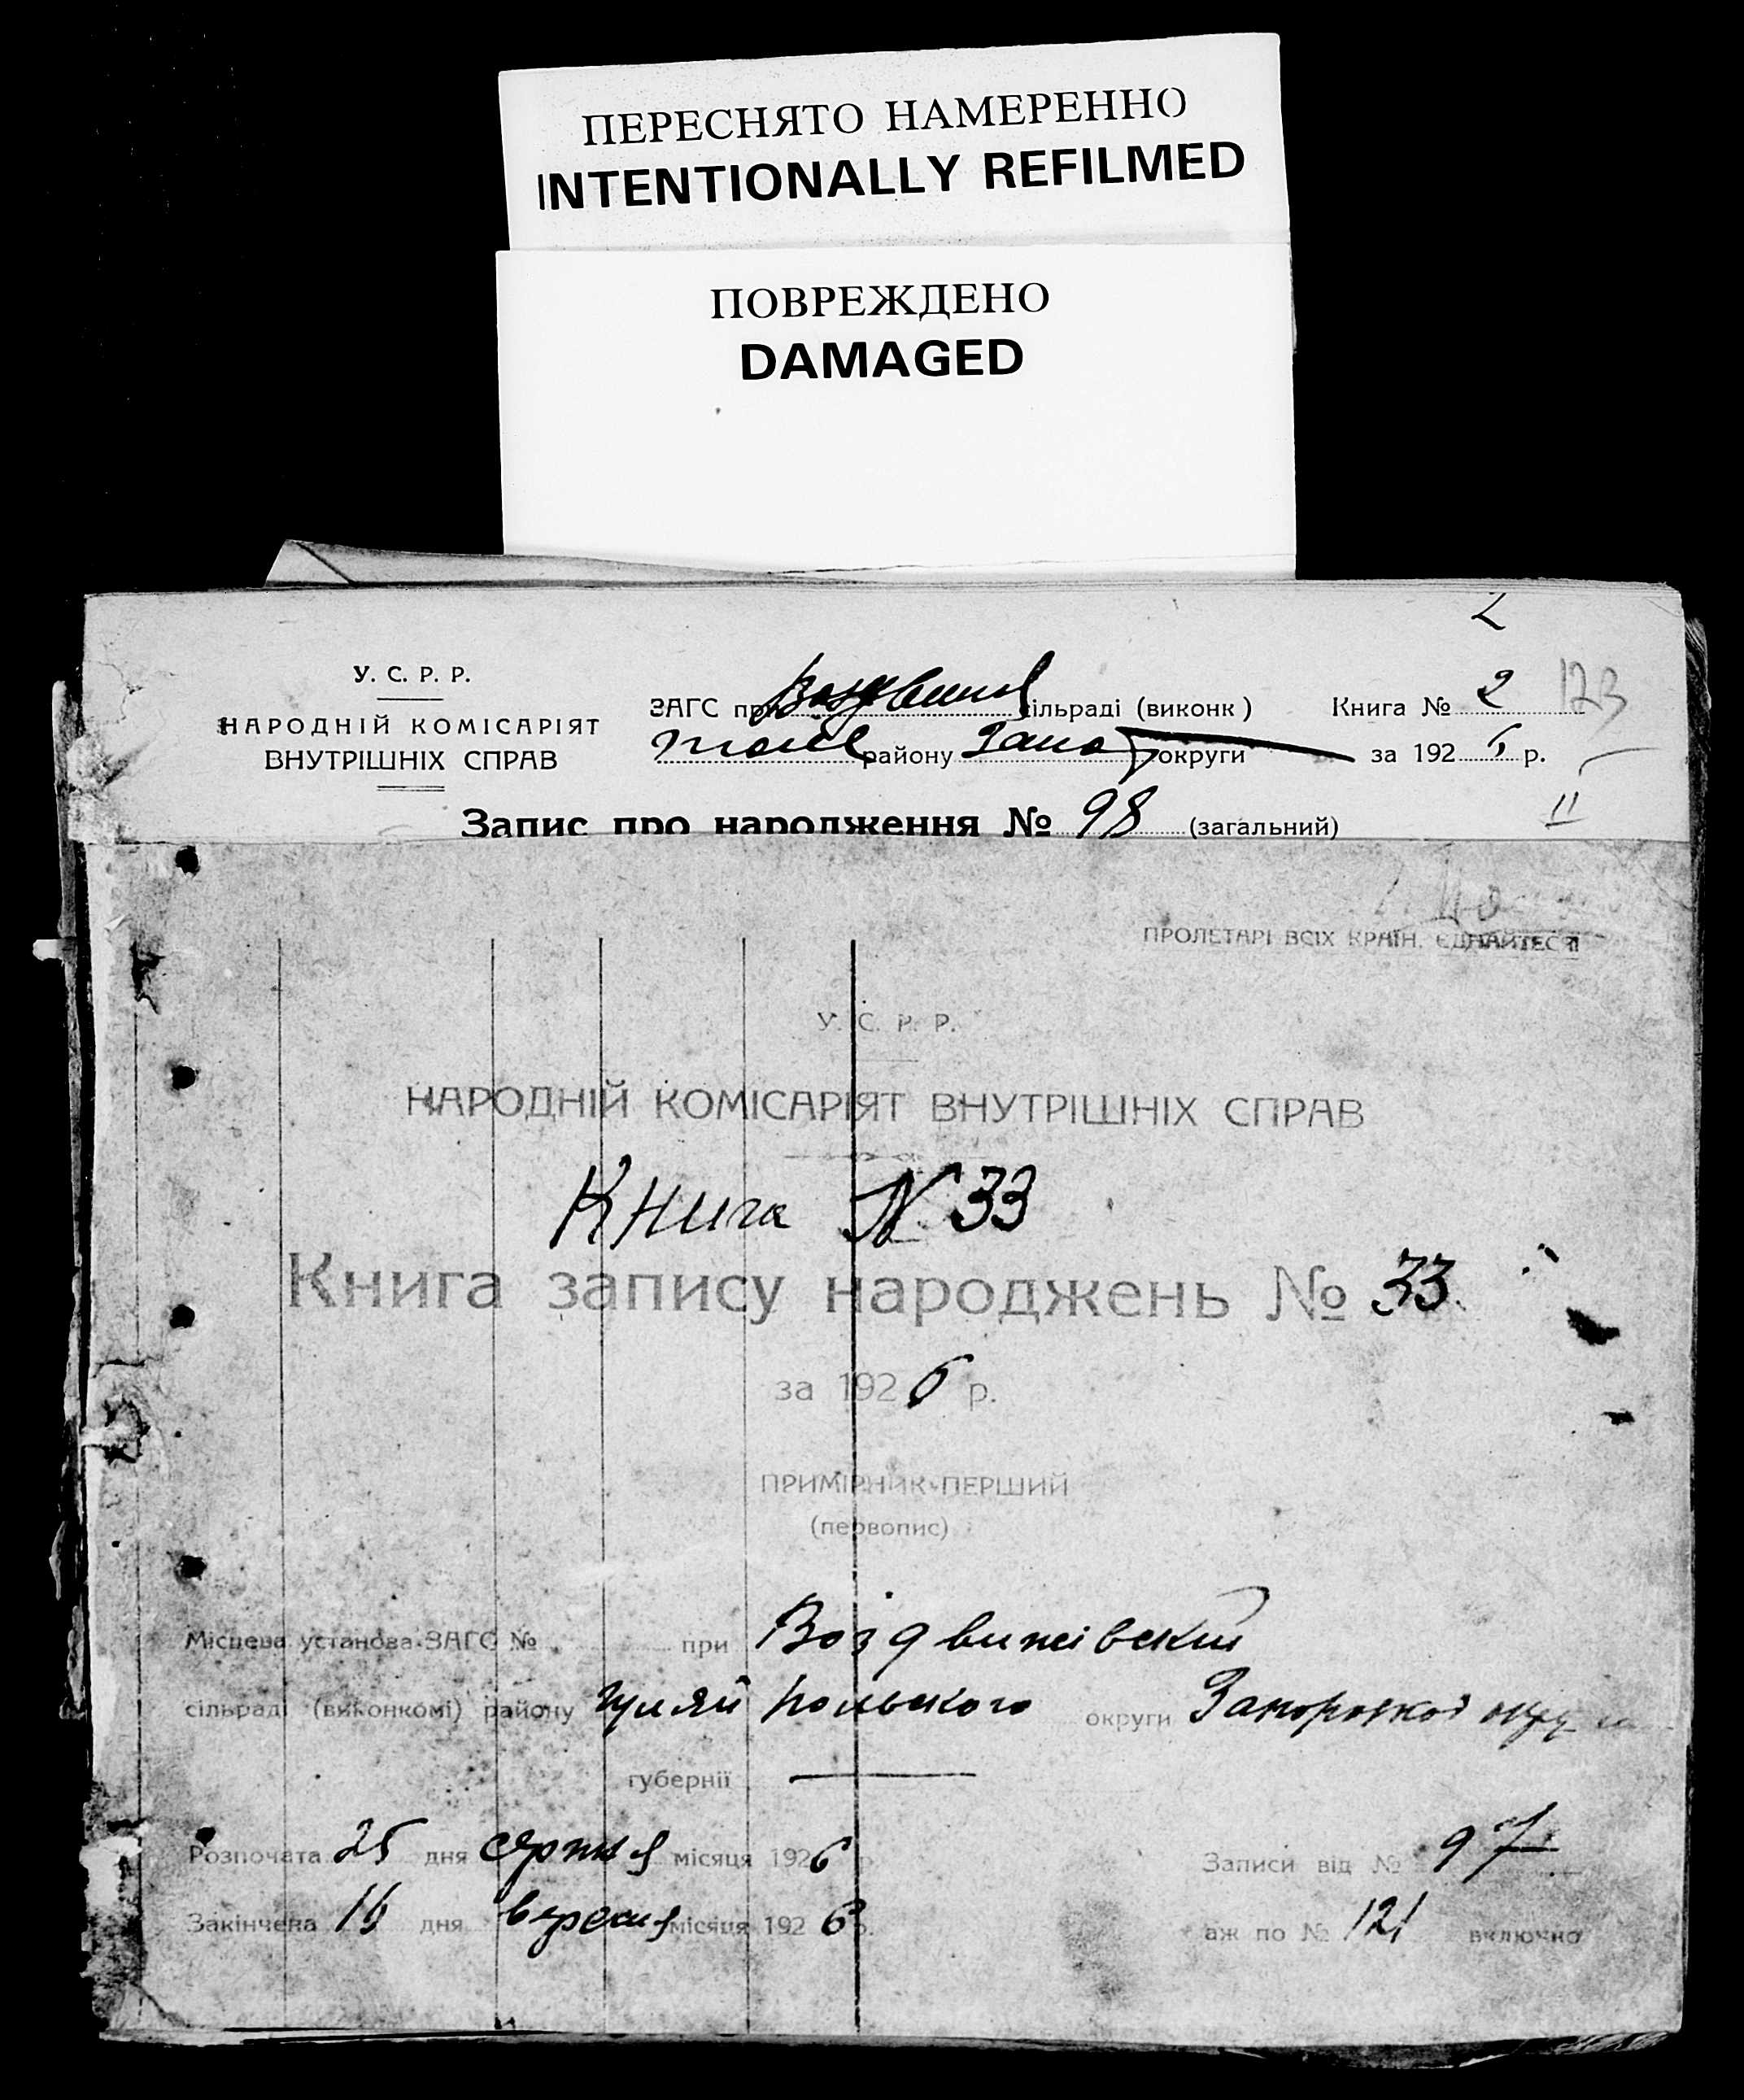 ПЕРЕСНЯТО НАМЕРЕННО
INTENTIONALLY REFILMED
ПОВРЕЖДЕНО
DAMAGED
2
У. С. Р. Р.
НАРОДНІЙ КОМІСАРІЯТ
ВНУТРІШНІХ СПРАВ
ЗАГС при сільраді (виконк) Книга № 2 123
району Запор округи за 1926 р.
Запис про народження № 98 (загальний) 11
ПРОЛЕТАРІ ВСІХ КРАЇН, ЄДНАЙТЕСЯ
У. С. Р. Р.
НАРОДНІЙ КОМІСАРІЯТ ВНУТРІШНІХ СПРАВ
Книга № 33
Книга запису народжень № 33.
за 1926 р.
ПРИМІРНИК ПЕРШИЙ
(первопис)
Місцева установа ЗАГС № при Воздвижівский
сільраді (виконкомі) району Гуляй Польского округи Запорожкої
губернії —
Розпочата 25 дня серпня місяця 1926 р. Записи від № 97
Закінчена 16 дня вересня місяця 1926 р. аж по № 121 включно